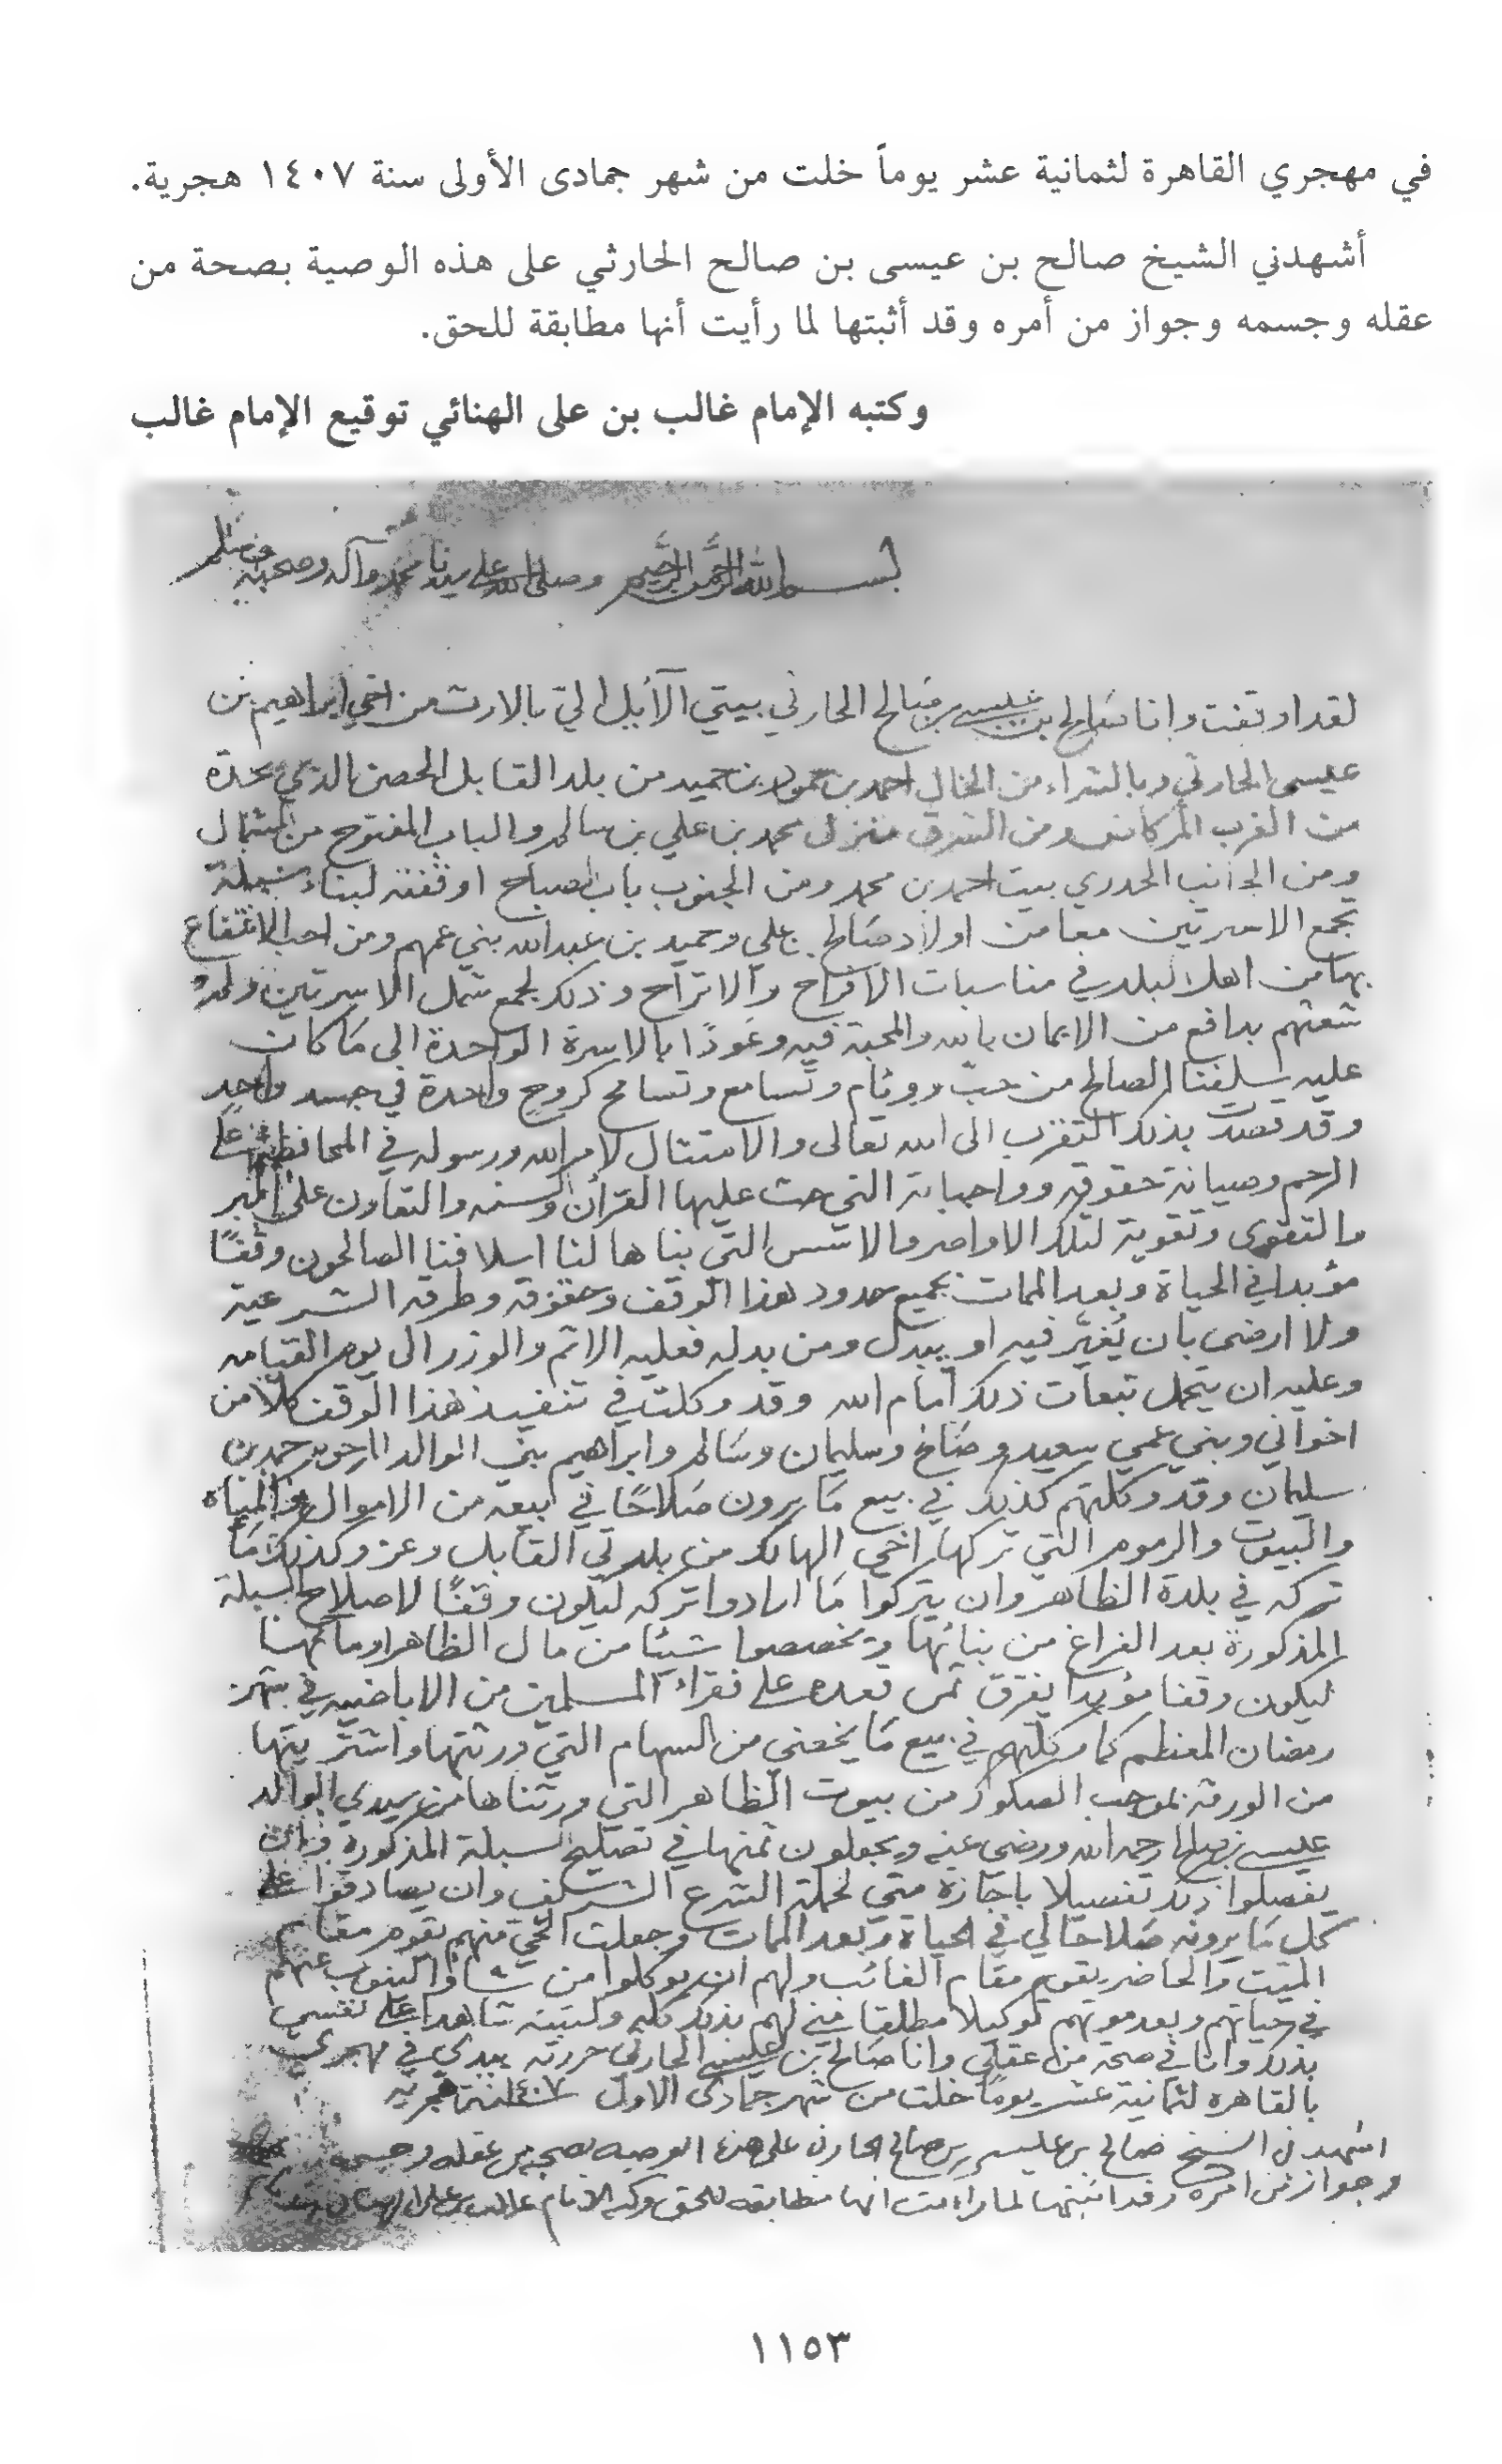 في مهجري القاهرة لثمانية عشر يوماً خلت من شهر جمادى الأولى سنة ١٤٠٧ هجرية.
أشهدني الشيخ صالح بن عيسى بن صالح الحارثي على هذه الوصية بصحة من
عقله وجسمه وجواز من أمره وقد أثبتها لما رأيت أنها مطابقة للحق.
وكتبه الإمام غالب بن على الهنائي توقيع الإمام غالب
بسم الله الرحمن الرحيم وصلى الله على سيدنا محمد وآله وصحبه وسلم
لقد اوقفت وانا صالح بن عيسى بن صالح الحارثي بيتي الآئل الي بالارث من اخي ابراهيم بن
عيسى الحارثي وبالشراء من الخال احمد بن حمود بن حميد من بلد القابل الحصن الذي يحده
من الغرب المركاض ومن الشرق منزل محمد بن علي بن سالم والباب المفتوح من الشمال
ومن الجانب الحدري بيت احمد بن محمد ومن الجنوب باب الصباح اوقفته لبناء سبلة
تجمع الاسرتين معا من اولاد صالح بن علي وحميد بن عبدالله بني عمهم ومن احب الانتفاع
بها من اهل البلد في مناسبات الافراح والاتراح وذلك لجمع شمل الاسرتين ولم
شعثهم بدافع من الايمان بالله والمحبة فيه وعودًا بالاسرة الواحدة الى ما كان
عليه سلفنا الصالح من حبّ ووئام وتسامع وتسامح كروح واحدة في جسد واحد
وقد قصدت بذلك التقرب الى الله تعالى والامتثال لامر الله ورسوله في المحافظة على
الرحم وصيانة حقوقه وواجباته التي حث عليها القرآن والسنه والتعاون على البر
والتقوى وتقوية لتلك الاواصر والاسس التي بناها لنا اسلافنا الصالحون وقفًا
مؤبدا في الحياة وبعد الممات بجميع حدود هذا الوقف وحقوقه وطرقه الشرعية
ولا ارضى بان يُغيّر فيه او يبدل ومن بدله فعليه الاثم والوزر الى يوم القيامه
وعليه ان يتحمل تبعات ذلك أمام الله وقد وكلت في تنفيذ هذا الوقف كلا من
اخواني وبني عمي سعيد وصالح وسليمان وسالم وابراهيم بني الوالد المرحوم حمد بن
سليمان وقد وكلتهم كذلك في بيع ما يرون صلاحًا في بيعه من الاموال والمياه
والبيوت والرموم التي تركها اخي الهالك من بلدتي القابل وعز وكذلك ما
تركه في بلدة الظاهر وان يتركوا ما ارادوا تركه ليكون وقفًا لاصلاح السبلة
المذكورة بعد الفراغ من بنائها ويخصصوا شيئا من مال الظاهر او مائها
ليكون وقفا مؤبدا يفرق ثمن قعده على فقراء المسلمين من الاباضيه في شهر
رمضان المعظم كما وكلتهم في بيع ما يخصني من السهام التي ورثتها واشتريتها
من الورثة بموجب الصكوك من بيوت الظاهر التي ورثناها من سيدي الوالد
عيسى بن صالح رحمه الله ورضي عنه ويجعلون ثمنها في تصليح السبلة المذكورة وان
يفصلوا ذلك تفصيلا باجازة مني لحملة الشرع الشريف وان يصادقوا على
كل ما يرونه صلاحا لي في الحياة وبعد الممات وجعلت الحي منهم يقوم مقام
الميت والحاضر يقوم مقام الغائب ولهم ان يوكلوا من شاؤا لينوب عنهم
في حياتهم وبعد موتهم توكيلا مطلقا مني لهم بذلك كله وكتبته شاهدا على نفسي
بذلك وانا في صحة من عقلي وانا صالح بن عيسى الحارثي حررته بيدي في مهجري
بالقاهره لثمانية عشر يومًا خلت من شهر جمادى الاول سنة ١٤٠٧ هجرية
اشهدني الشيخ صالح بن عيسى بن صالح الحارثي على هذه الوصيه بصحة من عقله وجسمه
وجواز من امره وقد اثبتها لما رايت انها مطابقه للحق وكتبه الامام غالب بن علي الهنائي بيده
١١٥٣